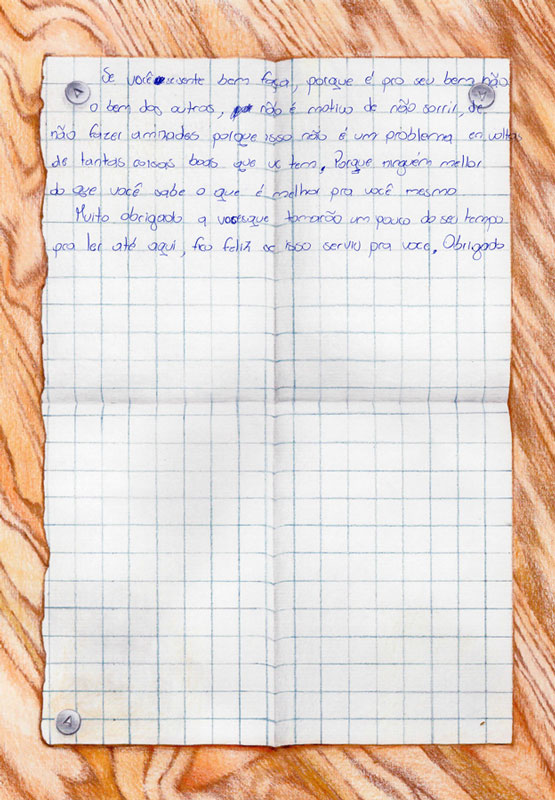 Se você se sente bem faça, porque é pro seu bem não
o bem dos outros, não é motivo de não sorrir, de
não fazer amizades porque isso não é um problema en volta
de tantas coisas boas que vc tem. Porque ninguém melhor
do que você sabe o que é melhor pra você mesmo
Muito obrigado a voces que tomarão um pouco do seu tempo
pra ler até aqui, fico feliz se isso serviu pra voce. Obrigado